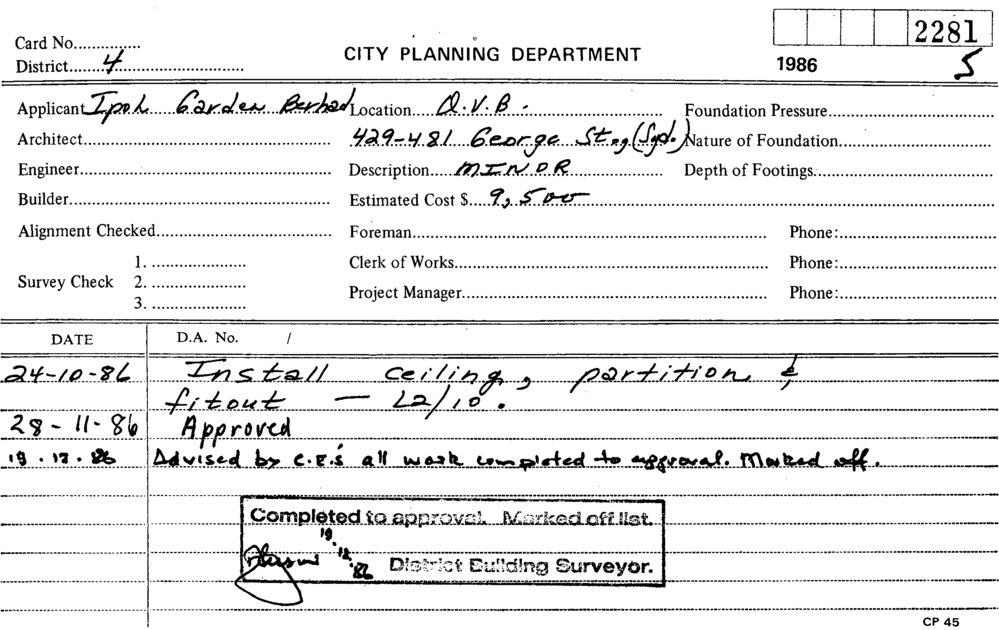 2281
Card No.
CITY PLANNING DEPARTMENT
District 4
1986
S
Applicant Ipoh Garden Berhad Location Q.V.B. Foundation Pressure
Architect 429-481 George St., (Syd.) Nature of Foundation
Engineer Description MINOR Depth of Footings
Builder Estimated Cost $ 9,500
Alignment Checked Foreman Phone:
1. Clerk of Works Phone:
Survey Check 2.
3. Project Manager Phone:
DATE D.A. No. /
24-10-86 Install ceiling, partition &
fitout — L2/10.
28-11-86 Approved
19.12.86 Advised by C.E.'s all work completed to approval. Marked off.
Completed to approval. Marked off list.
19.12.86
District Building Surveyor.
CP 45